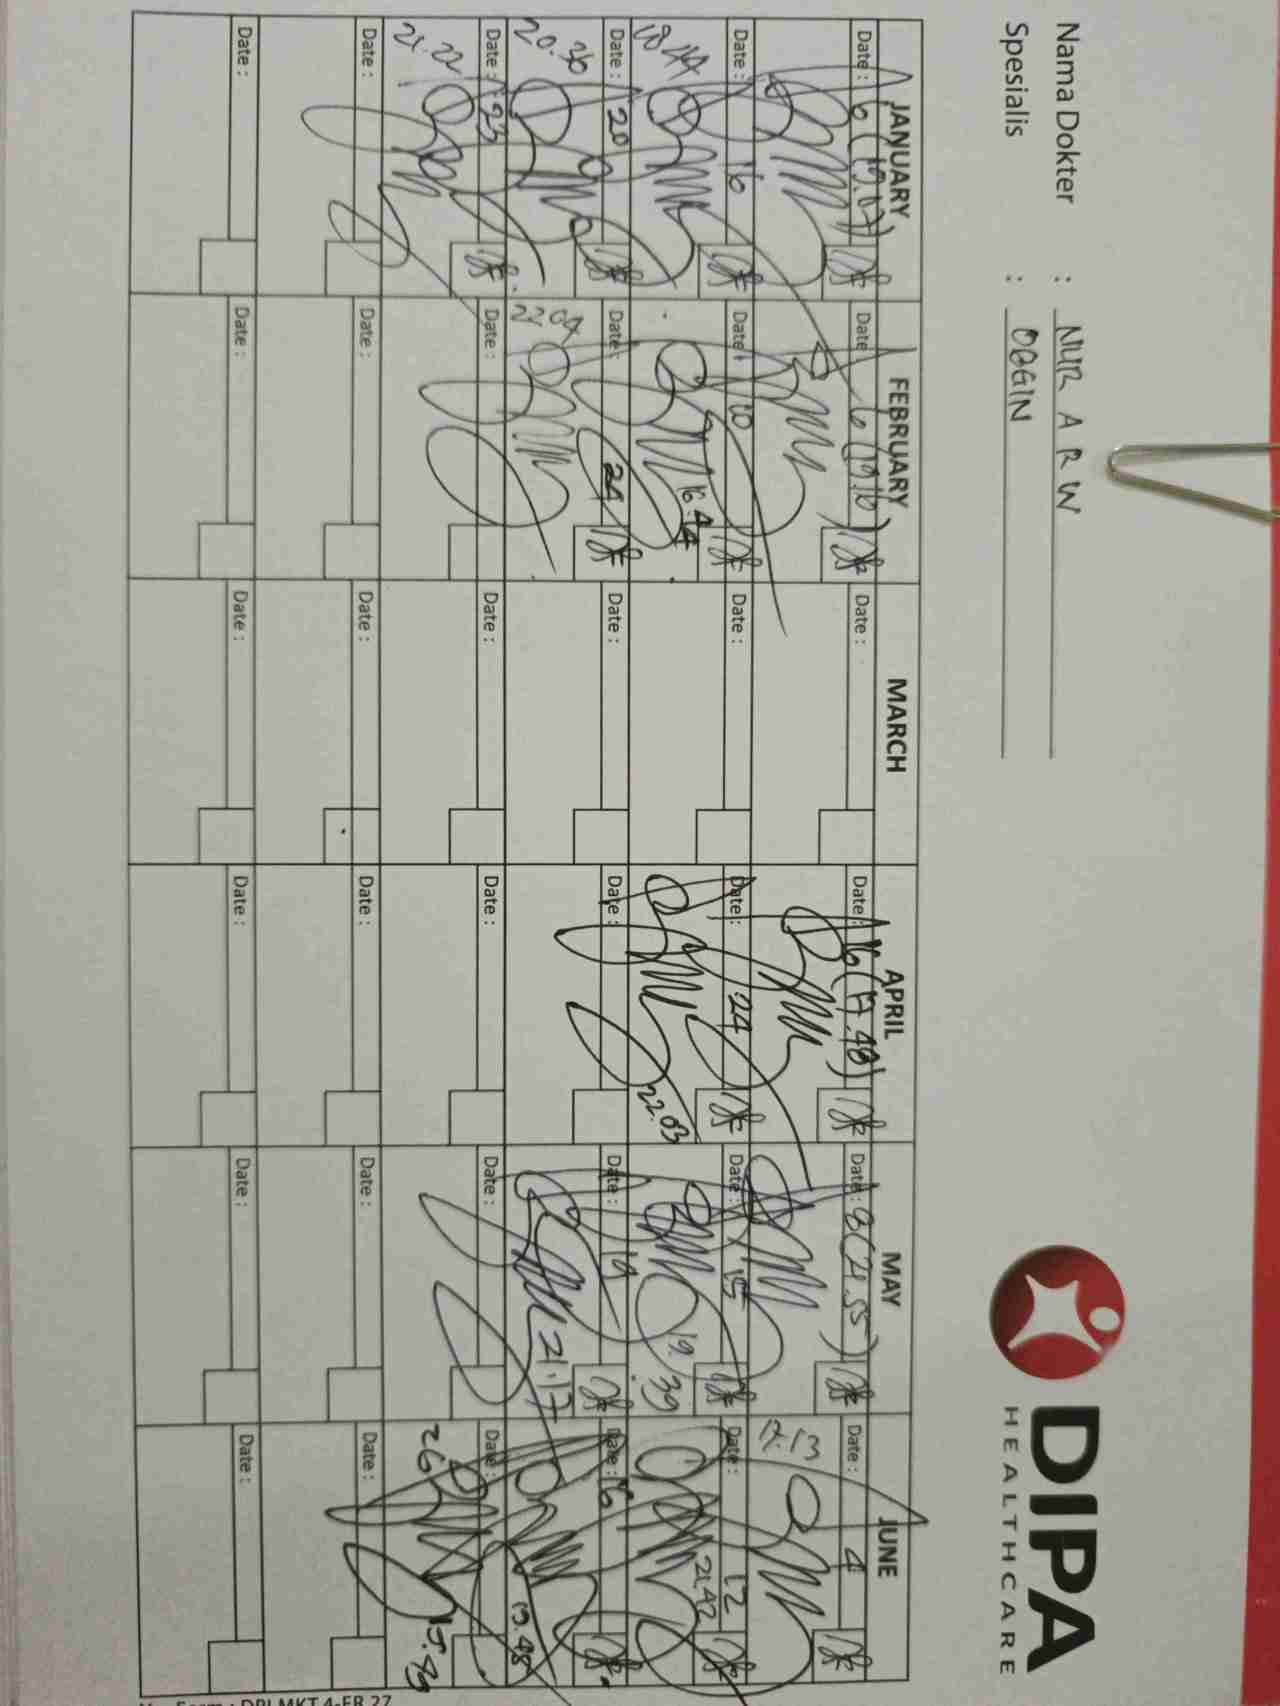 Nama Dokter : NUR A R W
Spesialis : OBGIN
DIPA
HEALTHCARE
JANUARY FEBRUARY MARCH APRIL MAY JUNE
Date : 6 (19.07) Date : 6 (19.16) Date : Date : 16 (17.48) Date : 8 (21.55) Date : 4
17.13
Date : 16 Date : 10 Date : Date : 24 Date : 15 Date : 12
18.44 16.44 22.03 19.39 21.42
Date : 20 Date : 24 Date : Date : Date : 19 Date : 16
20.30 22.04 21.17 19.48
Date : 23 Date : Date : Date : Date : Date : 26
21.22
Date : Date : Date : Date : Date : Date :
Date : Date : Date : Date : Date : Date :